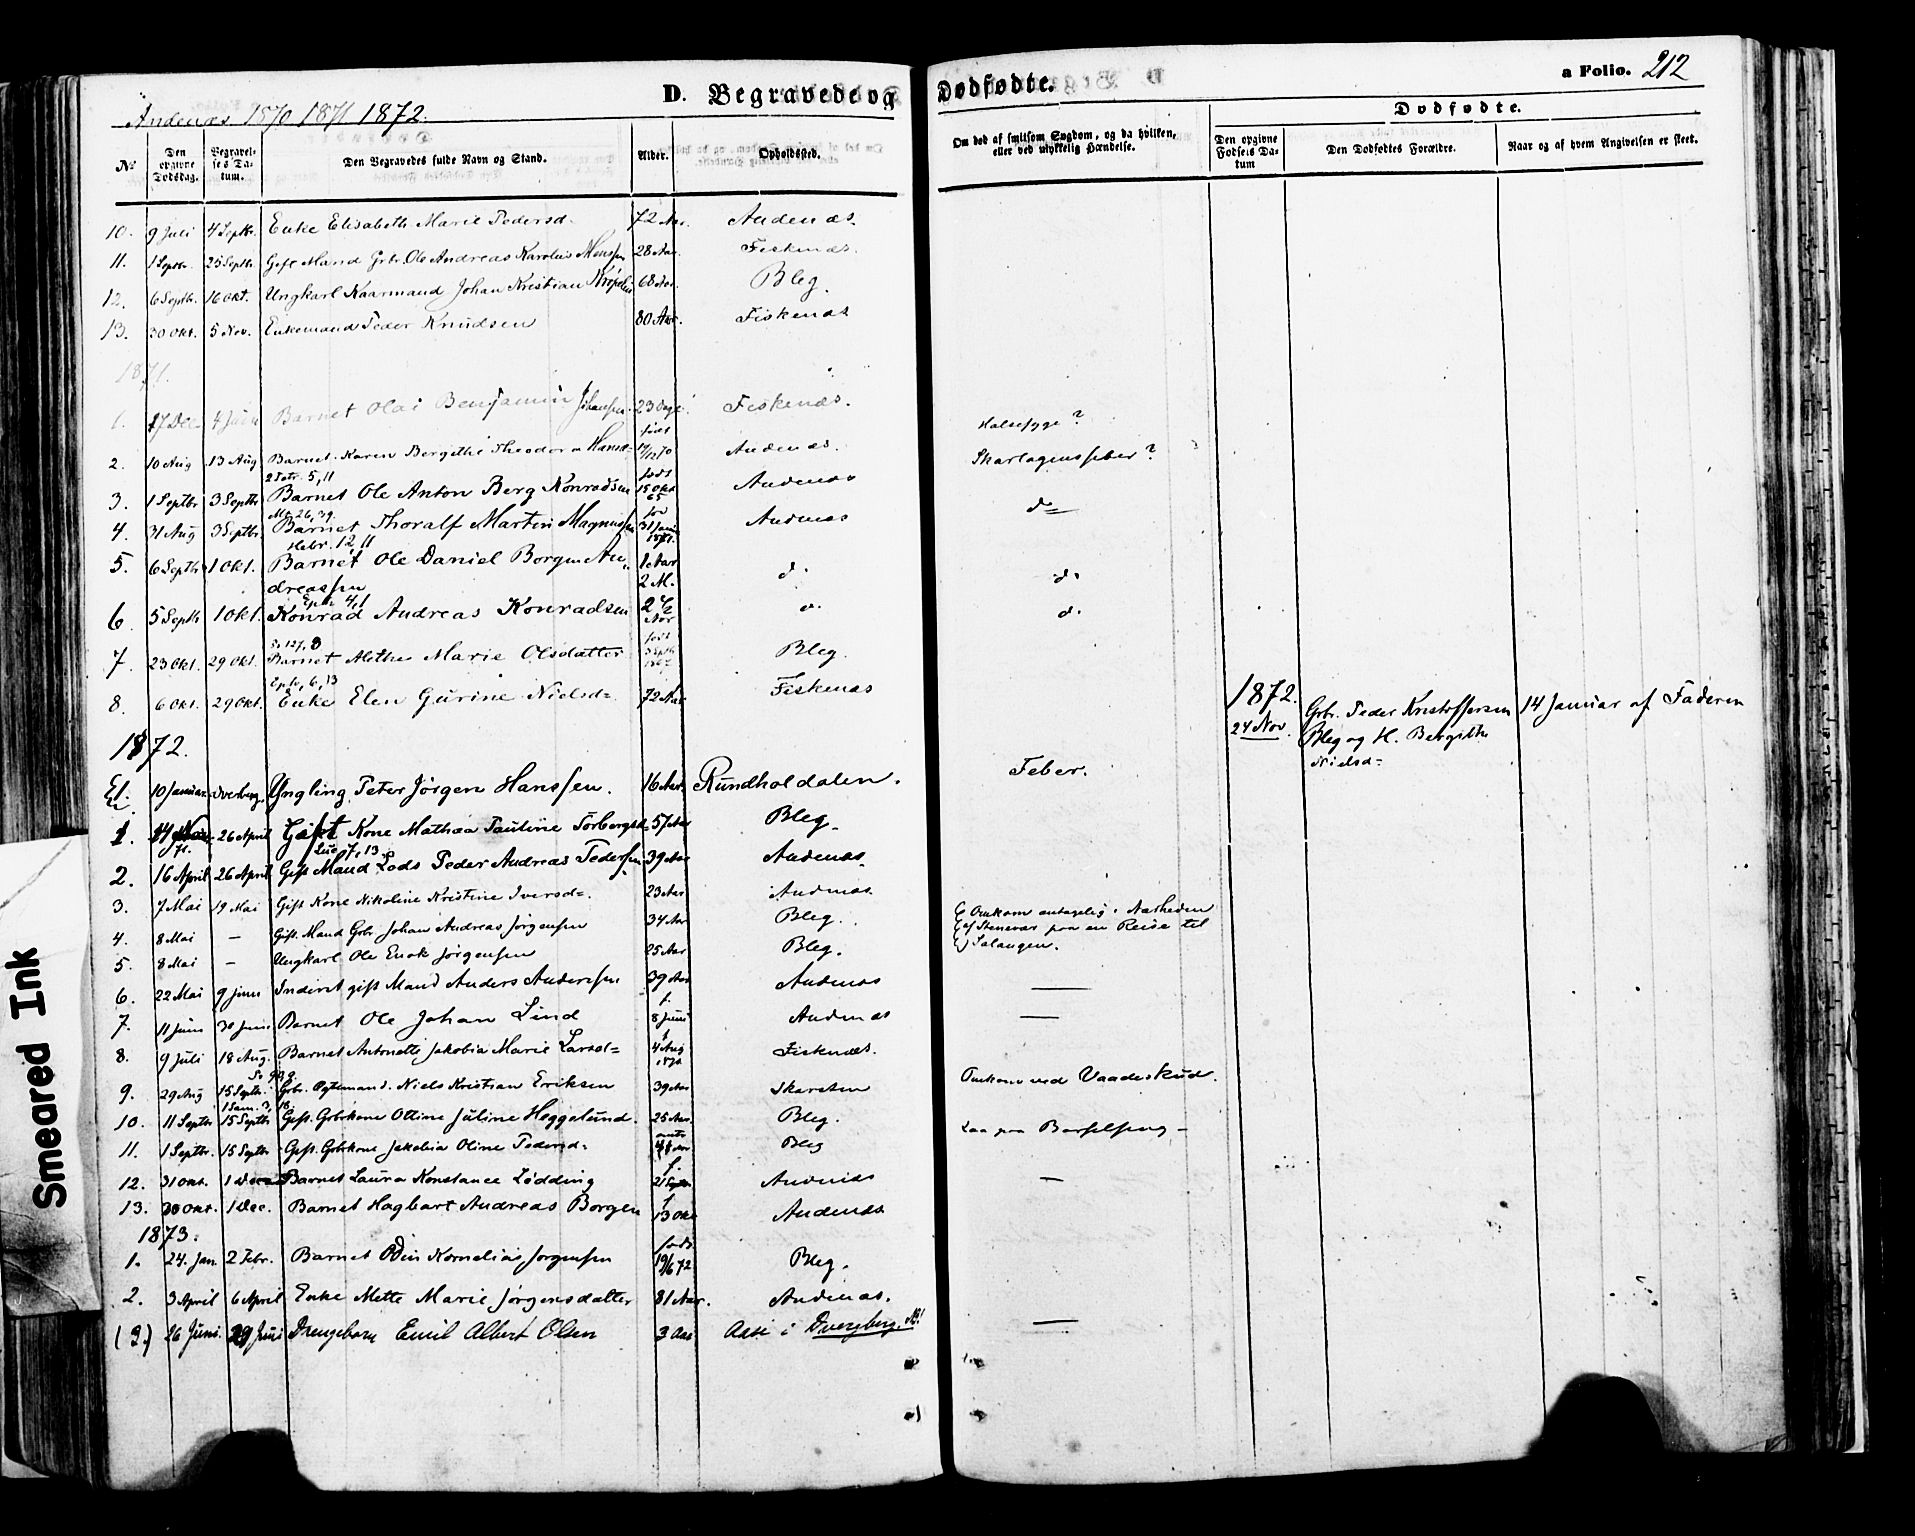 Andenæs 1870 1871 1872.
D. Begravede og Dødfødte.
a Folio. 212
Dødfødte.
No
Den opgivne Dødsdag.
Begravelses Datum.
Den Begravedes fulde Navn og Stand.
Alder.
Opholdssted.
Om død af smitsom Sygdom, og da hvilken, eller ved ulykkelig Hændelse.
Den opgivne Fødsels Datum
Den Dødfødtes Forældre.
Naar og af hvem Angivelsen er skeet.
10. 9 Juli 4 Septbr. Enke Elisabeth Marie Pedersd. 72 Aar. Andenæs.
11. 1 Septbr. 25 Septbr. Gift Mand Grbr. Ole Andreas Karolius Monssen 28 Aar. Fiskenæs.
12. 6 Septbr. 16 Okt. Ungkarl Kaarmand Johan Kristian 68 Aar. Bleg.
13. 30 Okt. 5 Nov. Enkemand Peder Knudsen 80 Aar. Fiskenæs
1871.
1. 17 Dec. 4 Juni Barnet Olai Benjamin Johansen 23 Dage Fiskenæs. Halssyge?
2. 10 Aug 13 Aug Barnet Karen Bergithe Theodora Hansd= født 19/12 70 Andenæs. Skarlagensfeber?
2 Petr. 5, 11
3. 1 Septbr 3 Septbr Barnet Ole Anton Berg Konradsen født 15 Okt 65 Andenæs d=
Mt. 26, 39.
4. 31 Aug 3 Septbr. Barnet Thoralf Martin Magnussen 31 Janu 1871. Andenæs
Hebr. 12, 11
5. 6 Septbr 1 Okt. Barnet Ole Daniel Borgen An-
dreassen 1 Aar 2 M. d. d.
Eph. 4, 1
6 5 Septbr 1 Okt. Konrad Andreas Konradsen 2 1/2 Aar d. d.
Ps. 127, 3
7. 23 Okt. 29 Okt. Barnet Alethe Marie Olsdatter født Septb 1867 Bleg.
Eph. 6, 13
8. 6 Okt. 29 Okt. Enke Elen Gurine Nielsd= 72 Aar Fiskenæs
1872. 24 Nov. Grbr. Peder Kristoffersen Bleg og H. Bergithe Nielsd= 14 Januar af Faderen
1872.
10 Januar Dverberg. Yngling Peter Jørgen Hanssen. 16 Aar. Rundholdalen. Feber.
1. 14 26 April Gift Kone Mathea Pauline Torbergsd= 57 Aar Bleg.
Luc. 7, 13
2. 16 April 26 April Gift Mand Lods Peder Andreas Pedersen 39 Aar Andenæs.
3. 7 Mai 19 Mai Gift Kone Nikoline Kristine Iversd=. 23 Aar Andenæs
4. 8 Mai — Gift Mand Grbr. Johan Andreas Jørgensen 34 Aar Bleg. Omkom antagelig i Nærheden af Stenevær paa en Reise til Salangen.
5. 8 Mai — Ungkarl Ole Enok Jørgensen 25 Aar Bleg.
6. 22 Mai 9 Juni Inderst gift Mand Anders Andersen 39 Aar Andenæs —
7. 11 Juni 30 Juni Barnet Ole Johan Lind f. 8 Juni Andenæs —
8. 9 Juli 18 Aug. Barnet Antonette Jakobia Marie Larsd= f. 4 Aug 1871 Fiskenæs.
9. 29 Aug 15 Septbr. Grbr. Ægtemand. Niels Kristian Eriksen 39 Aar Skarsten Omkom ved Vaadeskud.
1 Sam. 3, 18
10. 11 Septbr 15 Septbr Gift. Grbrkone Ottine Juline Heggelund. 25 Aar. Bleg. Laa paa Barselseng —
11. 1 Septbr. 15 Septbr Gift. Grbrkone Jakobia Oline Pedersd=. Bleg
12. 31 Okt. 1 Dec Barnet Laura Konstance Lødding f. 21 Septbr Andenæs —
13. 30 Okt. 1 Dec. Barnet Hagbart Andreas Borgen f 13 Okt Andenæs
1873.
1. 24. Jan. 2 Febr. Barnet Odin Kornelias Jørgensen født 19/6 72 Bleg.
2. 3 April 6 April Enke Mette Marie Jørgensdatter 81 Aar. Andenæs.
(3.) 26 Juni. 29 Juni Drengebarn Emil Albert Olsen 3 Aar Aase i Dverberg. NB! —
Smeared Ink